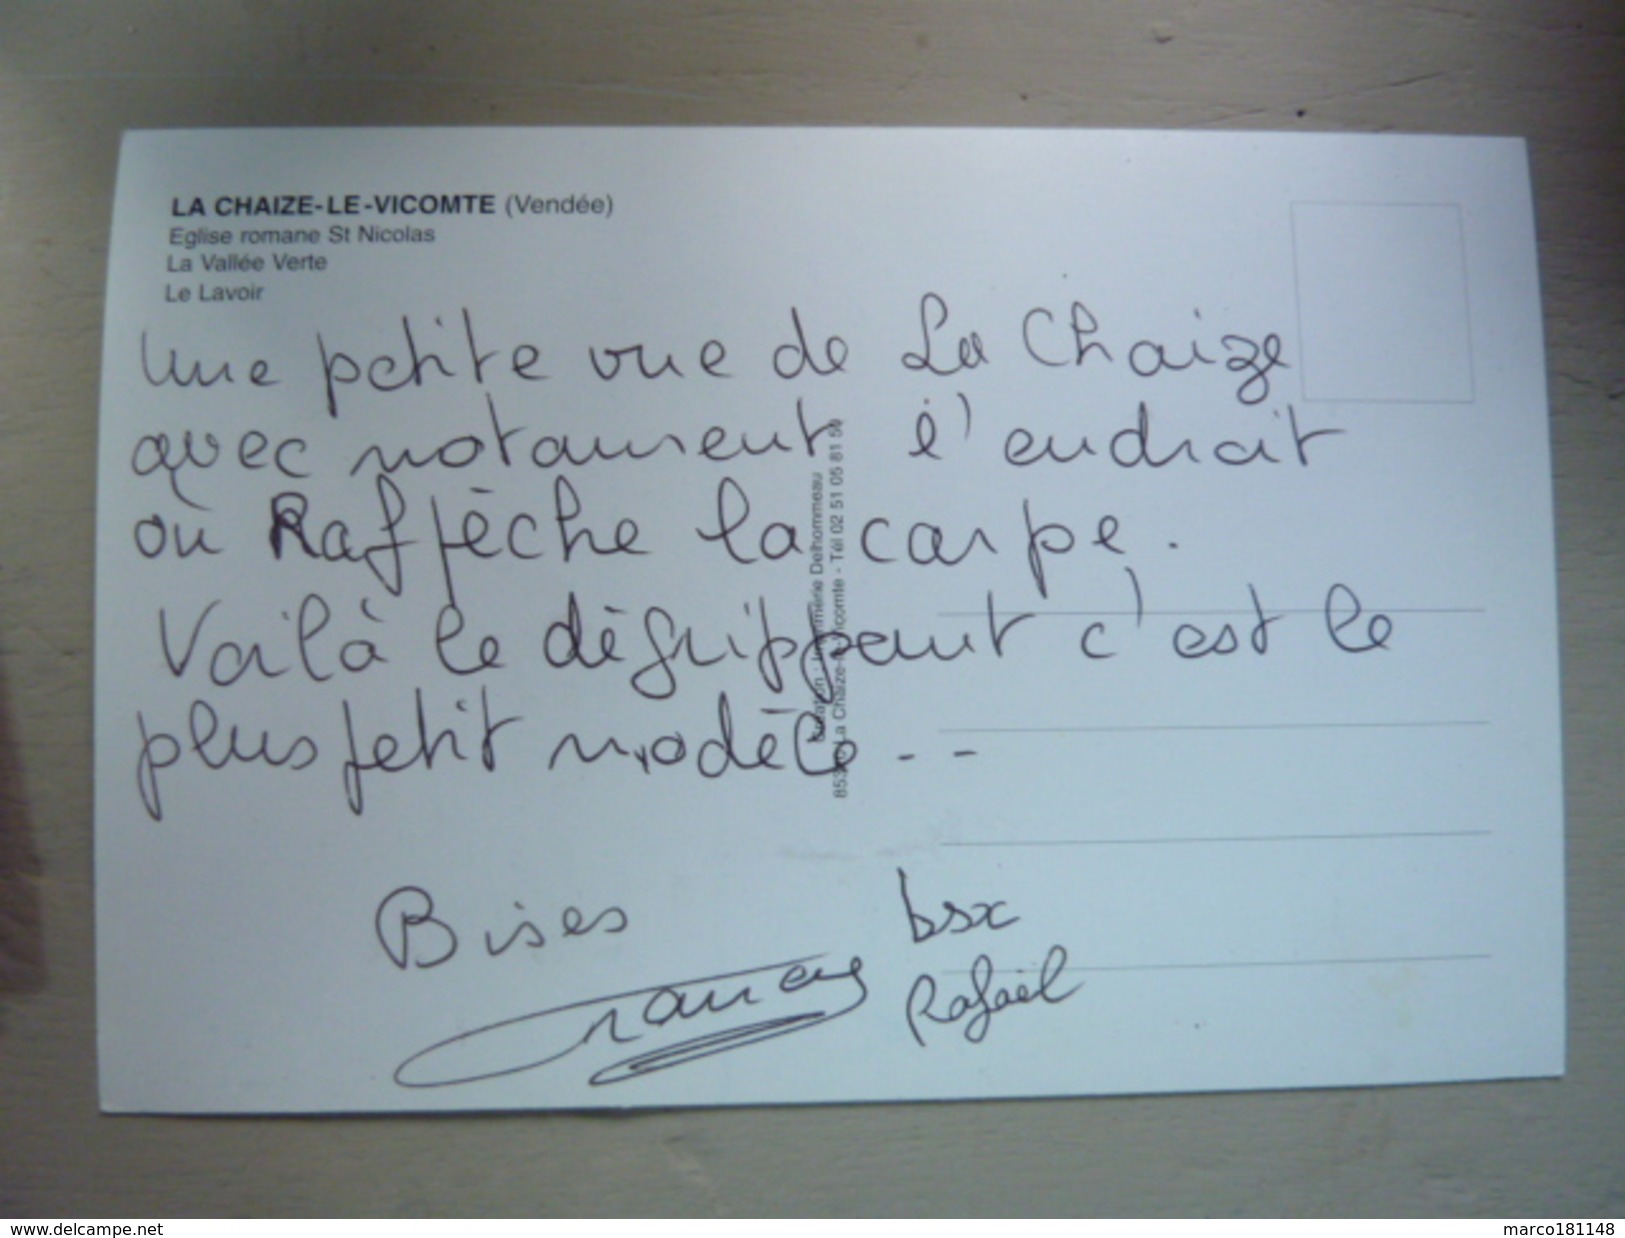 LA CHAIZE-LE-VICOMTE (Vendée)
Eglise romane St Nicolas
La Vallée Verte
Le Lavoir
Une petite vue de La Chaize
avec notamment l'endroit
où Raf pèche la carpe.
Voilà le dégrippant c'est le
plus petit modèle...
Bises
bsx
Rafaël
Création : Imprimerie Delhommeau
La Chaize-le-Vicomte - Tél 02 51 05 81 59
www.delcampe.net
marco181148